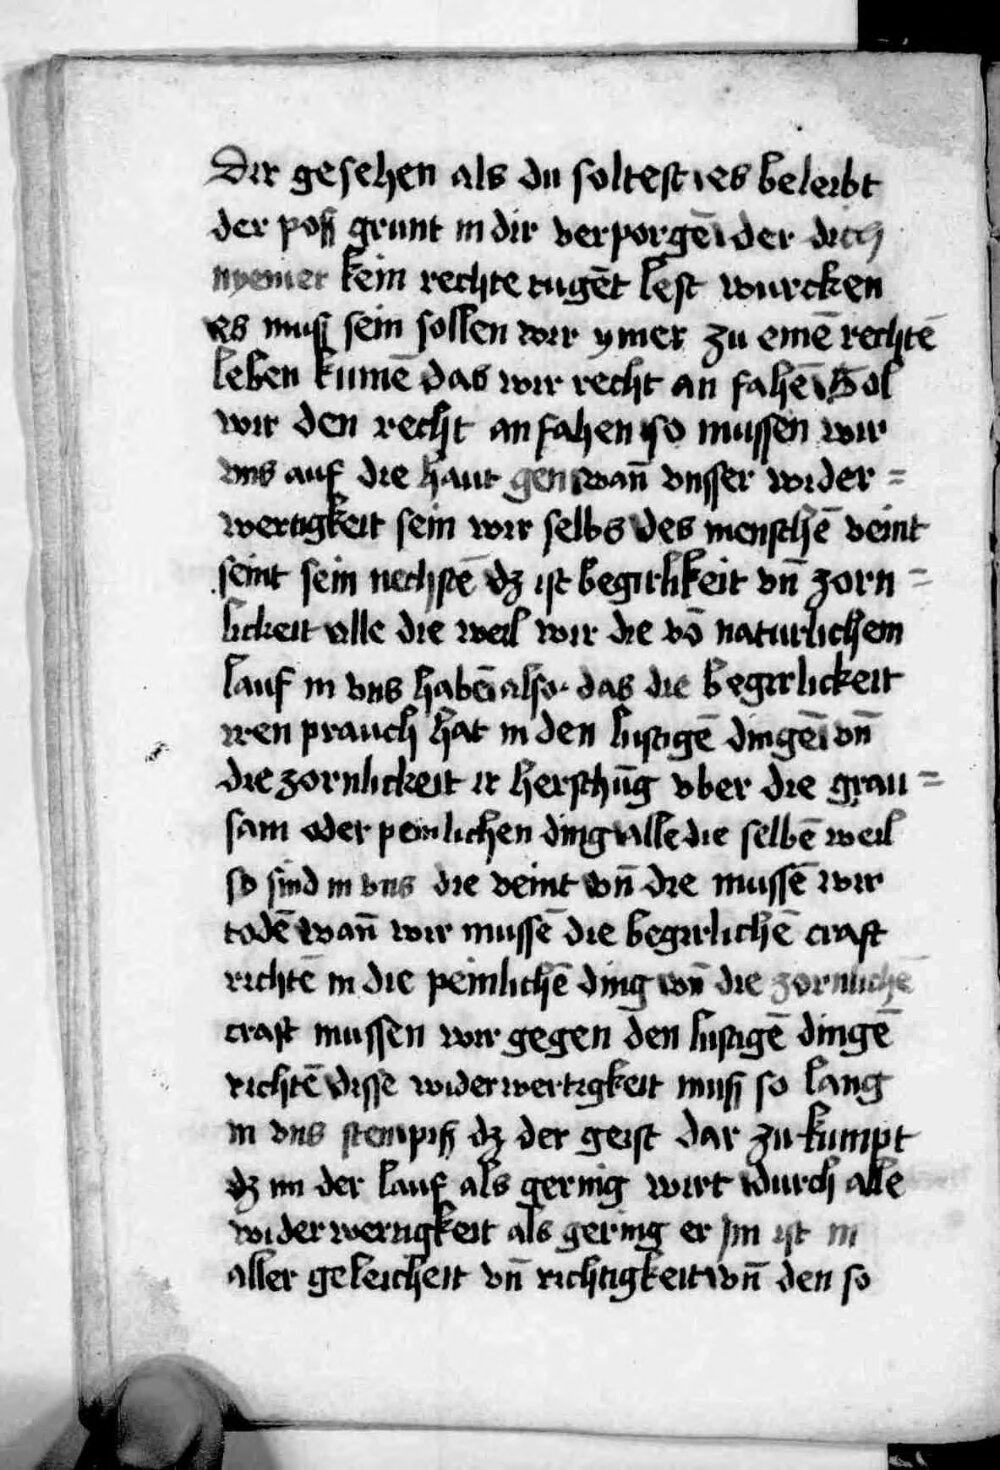 Dir gesehen als du soltest es beleibt
der poß grunt in dir verporgē der dich
nyemer kein rechte tugēt lest wurcken
es muß sein sollen wir ymer zu einē rechtē
leben kumē das wir recht an fahē Sol
wir den recht an fahen so mussen wir
vns auf die haut gen wañ vnsser wider=
wertigkeit sein wir selbs des menschē veint
seint sein nechstē dz ist begirlikeit vñ zorn=
lickeit alle die weil wir die vō naturlichem
lauf in vns habē also das die begirlickeit
iren prauch hat in den lustigē dingē vñ
die zornlickeit ir herschūg vber die grau=
sam oder peinlichen ding alle die selbē weil
so sind in vns die veint vñ die mussē wir
todē wañ wir mussē die begirlichē craft
richtē in die peinlichē ding vñ die zornlichē
craft mussen wir gegen den lustigē dingē
richtē disse widerwertigkeit muß so lang
in vns dz der geist dar zu kumpt
dz im der lauf als gering wirt durch alle
widerwertigkeit als gering er im ist in
aller geleicheit vñ richtigkeit vñ den so